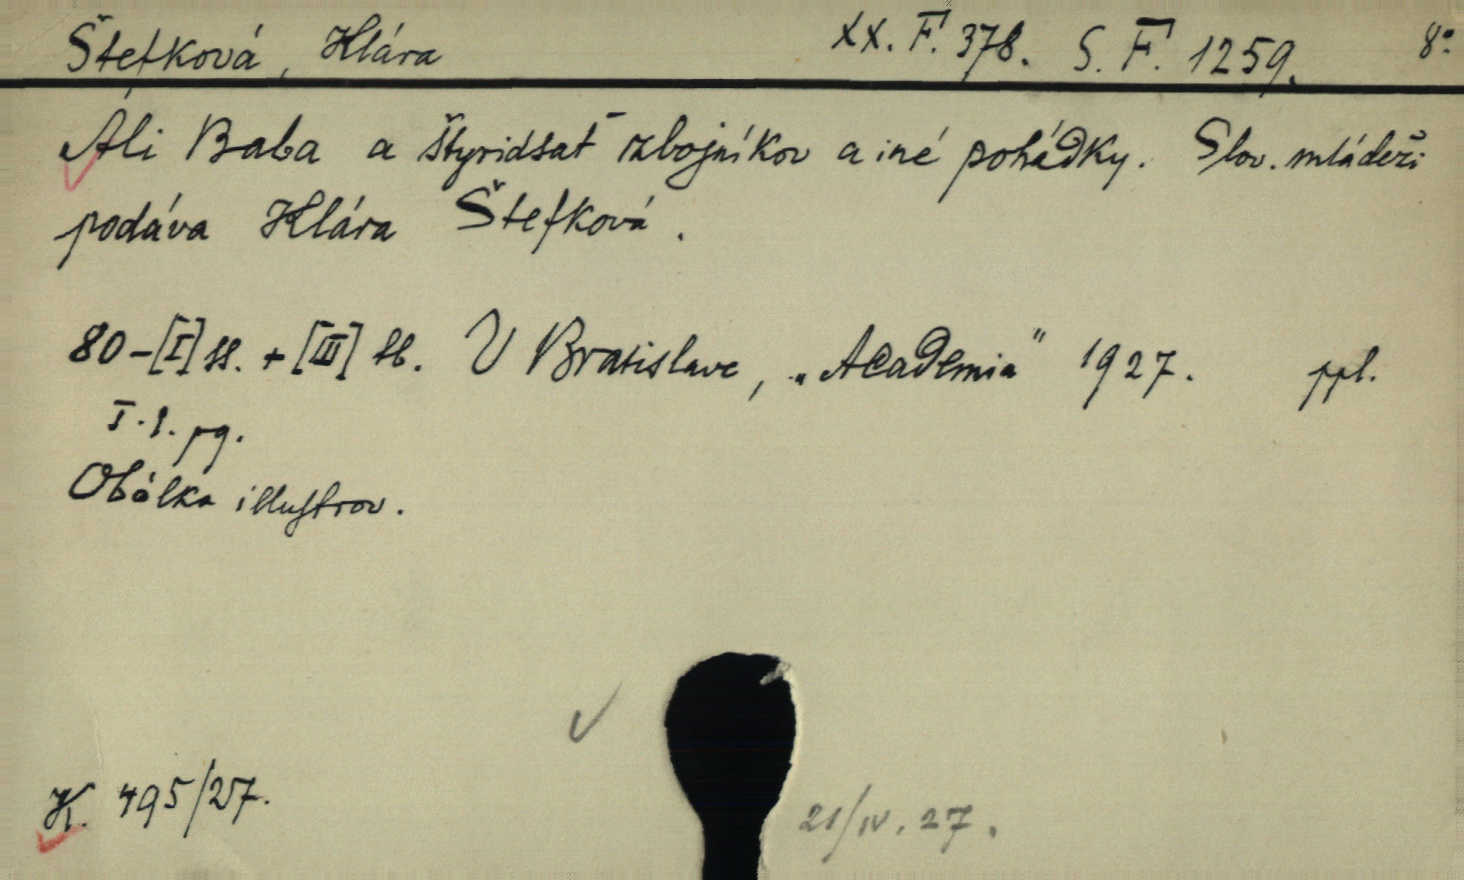 Štefková, Klára XX. F. 378. S. F. 1259. 8°.
Ali Baba a štyridsať zbojníkov a iné pohádky. Slov. mládeži
podáva Klára Štefková.
80-[I] ss. + [III] tb. V Bratislave, „Academia" 1927. ppl.
I. l. pg.
Obálka illustrov.
K. 495/27.
21/IV. 27.